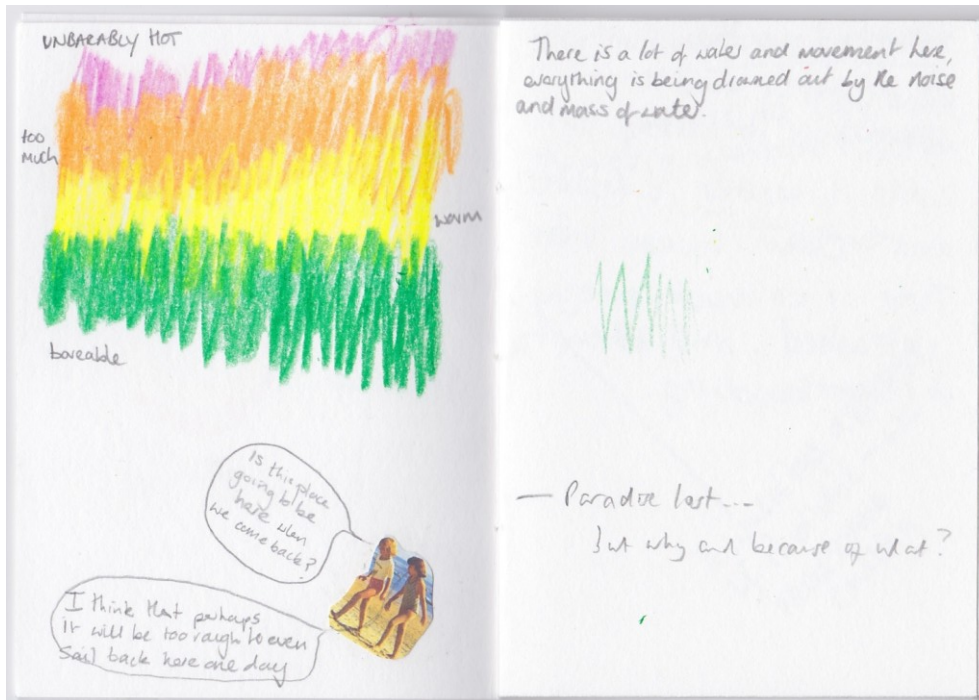 UNBARABLY HOT
too
MUCH
warm
boreable
Is this place
going to be
here when
we come back?
I think that perhaps
it will be too rough to even
Sail back here one day
There is a lot of water and movement here,
everything is being drowned out by the noise
and mass of water.
— Paradise lost...
but why and because of what?